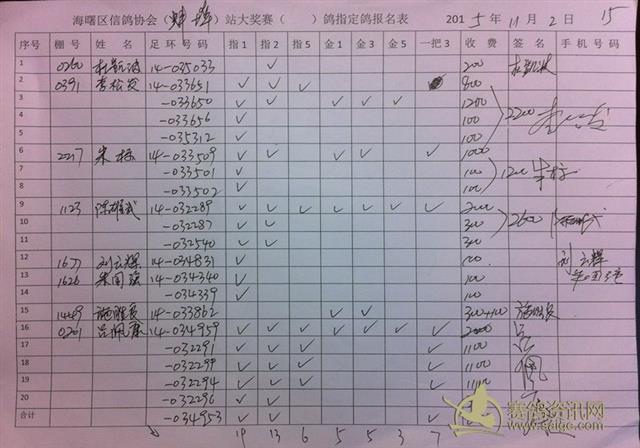 海曙区信鸽协会（蚌埠）站大奖赛（ ）鸽指定鸽报名表 2015年11月2日 15
序号 棚号 姓名 足环号码 指1 指2 指5 金1 金3 金5 一把3 收费 签名 手机号码
1 0260 14-035033 ✓ 200
2 0391 14-033651 ✓ ✓ ✓ 800
3 -033650 ✓ ✓ ✓ ✓ ✓ 1200 2200
4 -033656 ✓ 100
5 -035312 ✓ 100
6 2217 朱标 14-033509 ✓ ✓ ✓ ✓ ✓ 1000
7 -033501 ✓ 100 1200 朱标
8 -033502 ✓ 100
9 1123 陈雄武 14-032289 ✓ ✓ ✓ ✓ ✓ ✓ ✓ 2000
10 -032287 ✓ ✓ 300 2600
11 -032540 ✓ ✓ 300
12 1677 刘云辉 14-034831 ✓ 100 刘云辉
13 1626 朱国强 14-034340 ✓ 100
14 14-034339 ✓ 100
15 1449 14-033862 ✓ ✓ 300+400
16 0201 吕佩康 14-034959 ✓ ✓ ✓ ✓ ✓ ✓ ✓ 2000
17 -032291 ✓ ✓ ✓ ✓ 1100
18 -032299 ✓ ✓ ✓ ✓ 1100
19 -032294 ✓ ✓ ✓ ✓ 1100
20 -032296 ✓ ✓
合计 -034953 ✓ ✓ ✓
19 13 6 5 5 3 7
赛鸽资讯网
www.saige.com